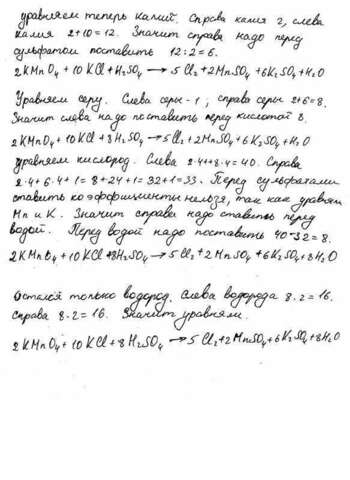 уравняем теперь калий. Справа калия 2, слева
калия 2+10=12. Значит справа надо перед
сульфатом поставить 12:2=6.
2KMnO₄+10KCl+H₂SO₄ → 5Cl₂+2MnSO₄+6K₂SO₄+H₂O
Уравняем серу. Слева серы-1, справа серы 2+6=8.
Значит слева надо поставить перед кислотой 8.
2KMnO₄+10KCl+8H₂SO₄ → 5Cl₂+2MnSO₄+6K₂SO₄+H₂O
уравняем кислород. Слева 2·4+8·4=40. Справа
2·4+6·4+1=8+24+1=32+1=33. Перед сульфатами
ставить коэффициенты нельзя, так как уравняли
Mn и K. Значит справа надо ставить перед
водой. Перед водой надо поставить 40-32=8.
2KMnO₄+10KCl+8H₂SO₄ → 5Cl₂+2MnSO₄+6K₂SO₄+8H₂O
Остался только водород. Слева водорода 8·2=16.
Справа 8·2=16. Значит уравняли.
2KMnO₄+10KCl+8H₂SO₄ → 5Cl₂+2MnSO₄+6K₂SO₄+8H₂O